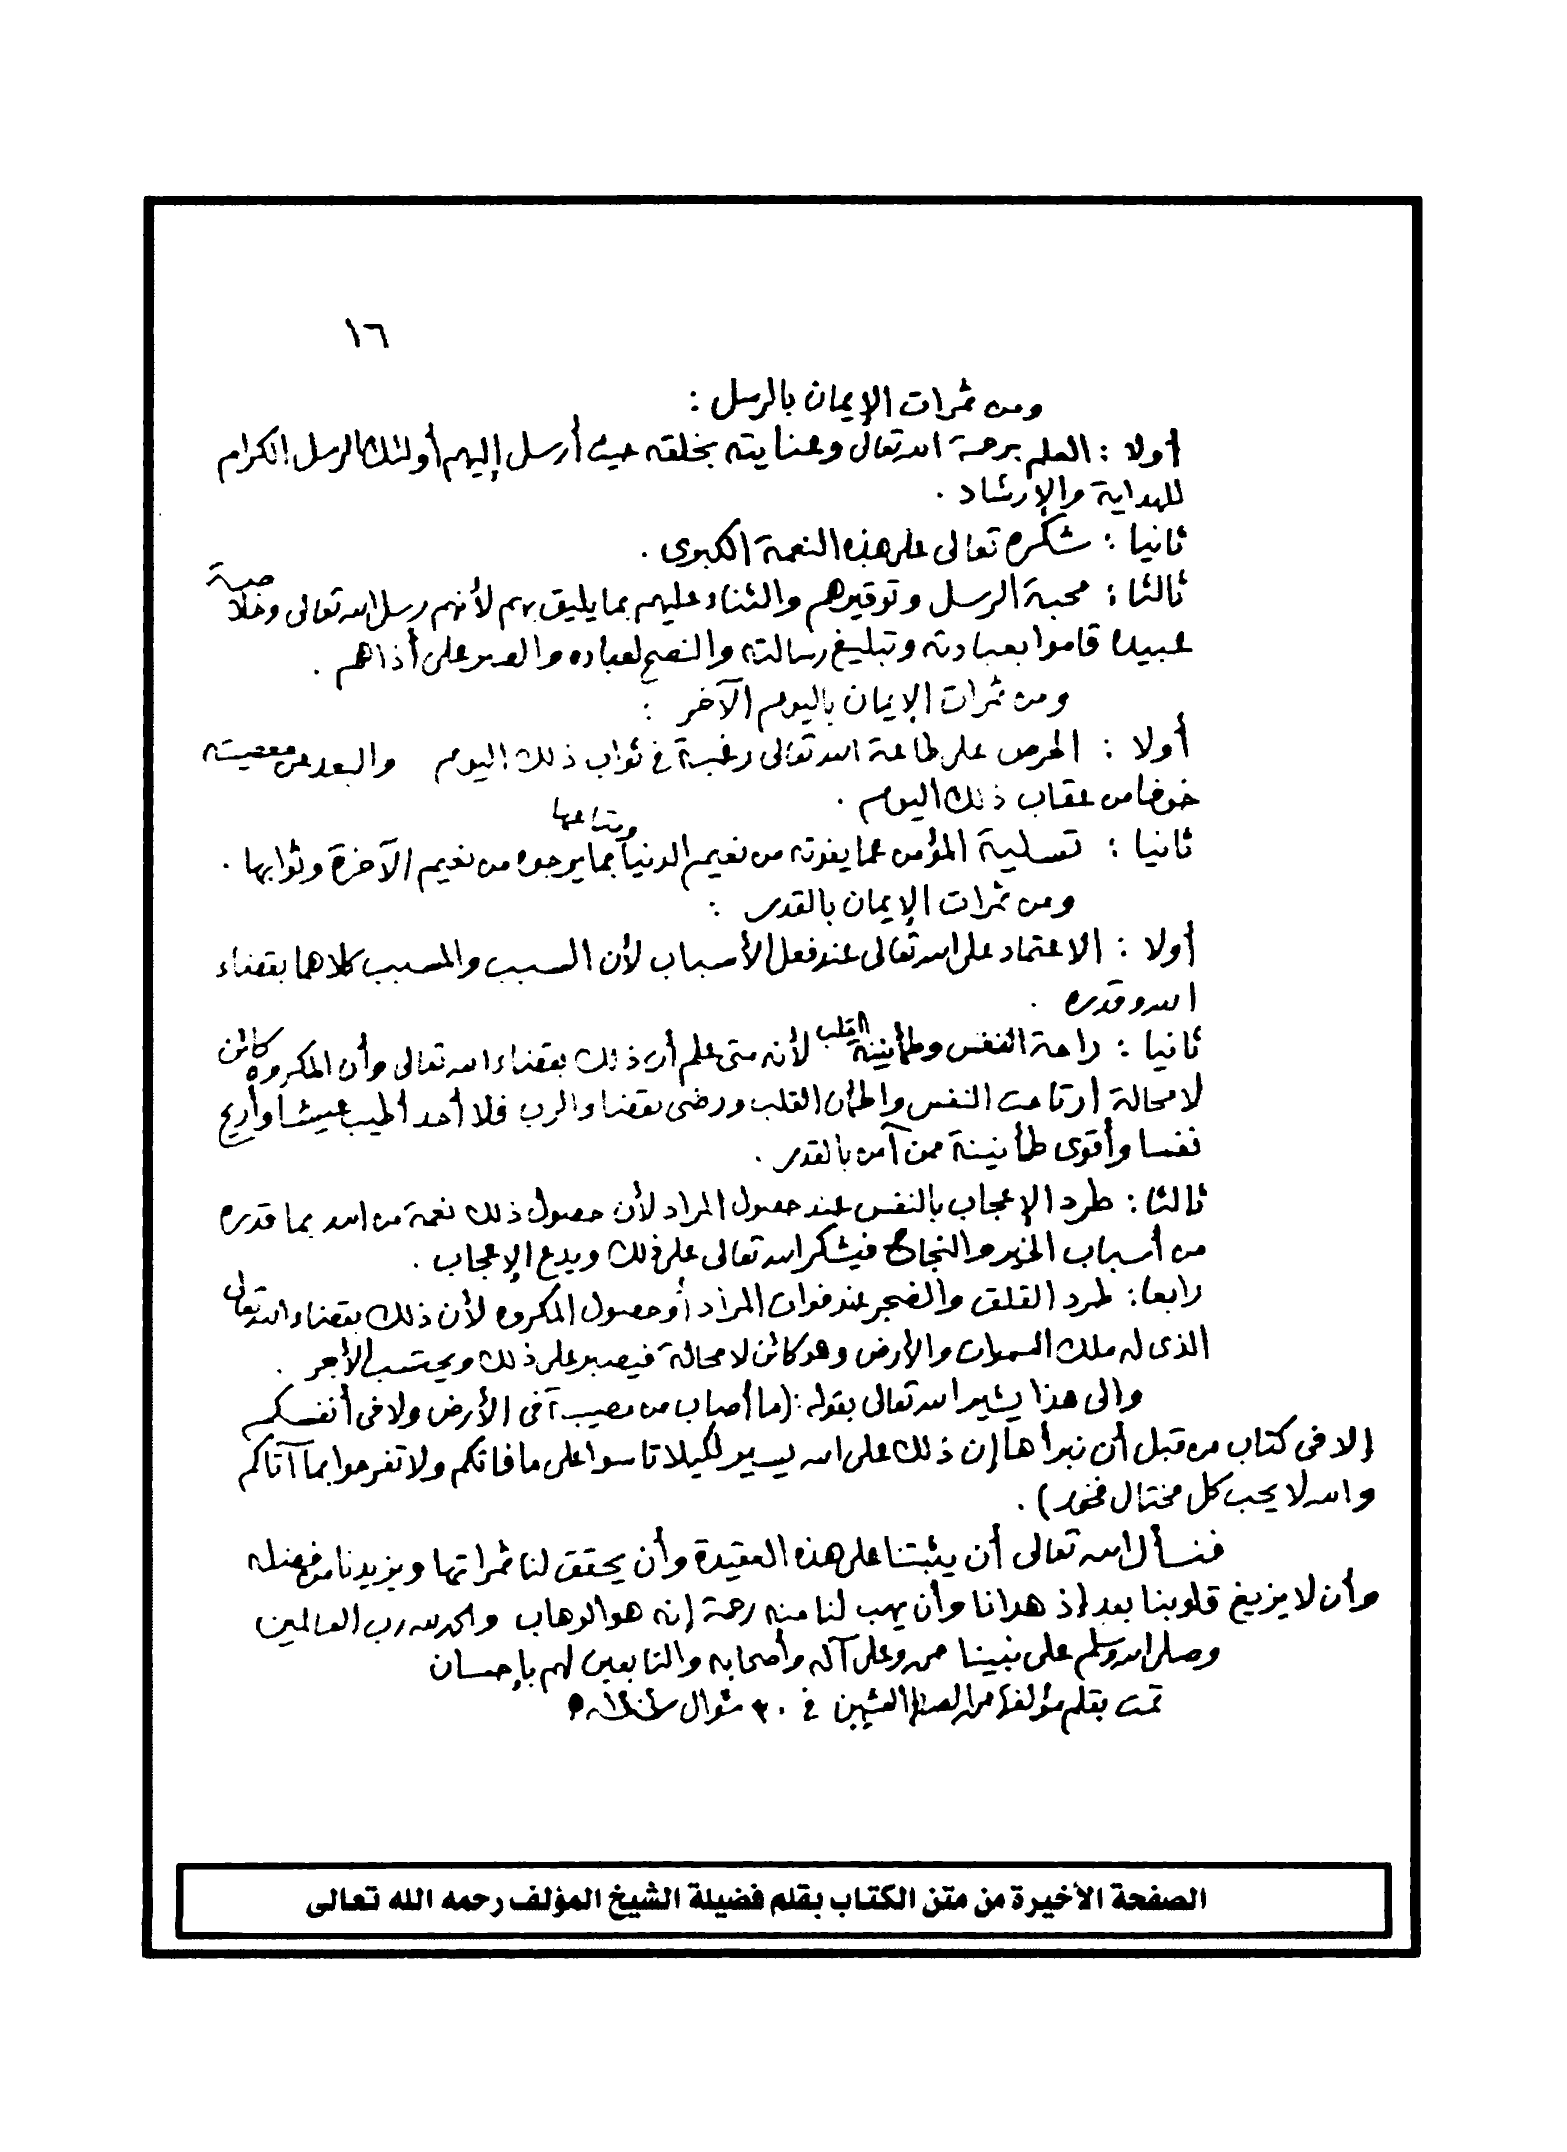 ١٦
ومن ثمرات الإيمان بالرسل :
أولا : العلم برحمة الله تعالى وعنايته بخلقه حيث أرسل إليهم أولئك الرسل الكرام
للهداية والإرشاد .
ثانيا : شكره تعالى على هذه النعمة الكبرى .
ثالثا : محبة الرسل وتوقيرهم والثناء عليهم بما يليق بهم لأنهم رسل الله تعالى وخلاصة
عبيده قاموا بعبادته وتبليغ رسالته والنصح لعباده والصبر على أذاهم .
ومن ثمرات الإيمان باليوم الآخر :
أولا : الحرص على طاعة الله تعالى رغبة في ثواب ذلك اليوم والبعد عن معصيته
خوفا من عقاب ذلك اليوم .
ثانيا : تسلية المؤمن عما يفوته من نعيم الدنيا ومتاعها بما يرجوه من نعيم الآخرة وثوابها .
ومن ثمرات الإيمان بالقدر :
أولا : الاعتماد على الله تعالى عند فعل الأسباب لأن السبب والمسبب كلاهما بقضاء
الله وقدره .
ثانيا : راحة النفس وطمأنينة القلب لأنه متى علم أن ذلك بقضاء الله تعالى وأن المكروه كائن
لا محالة ارتاحت النفس واطمأن القلب ورضي بقضاء الرب فلا أحد أطيب عيشا وأريح
نفسا وأقوى طمأنينة ممن آمن بالقدر .
ثالثا : طرد الإعجاب بالنفس عند حصول المراد لأن حصول ذلك نعمة من الله بما قدره
من أسباب الخير والنجاح فيشكر الله تعالى على ذلك ويدع الإعجاب .
رابعا : طرد القلق والضجر عند فوات المراد أو حصول المكروه لأن ذلك بقضاء الله تعالى
الذى له ملك السموات والأرض وهو كائن لا محالة فيصبر على ذلك ويحتسب الأجر .
والى هذا يشير الله تعالى بقوله : (ما أصاب من مصيبة فى الأرض ولا فى أنفسكم
إلا فى كتاب من قبل أن نبرأها إن ذلك على الله يسير لكيلا تاسوا على ما فاتكم ولا تفرحوا بما آتاكم
والله لا يحب كل مختال فخور) .
فنسأل الله تعالى أن يثبتنا على هذه العقيدة وأن يحقق لنا ثمراتها ويزيدنا من فضله
وأن لا يزيغ قلوبنا بعد إذ هدانا وأن يهب لنا منه رحمة إنه هو الوهاب والحمد لله رب العالمين
وصلى الله وسلم على نبينا محمد وعلى آله وأصحابه والتابعين لهم بإحسان
تمت بقلم مؤلفها محمد الصالح العثيمين في ٣٠ شوال سنة ١٤٠٤ هـ
الصفحة الأخيرة من متن الكتاب بقلم فضيلة الشيخ المؤلف رحمه الله تعالى